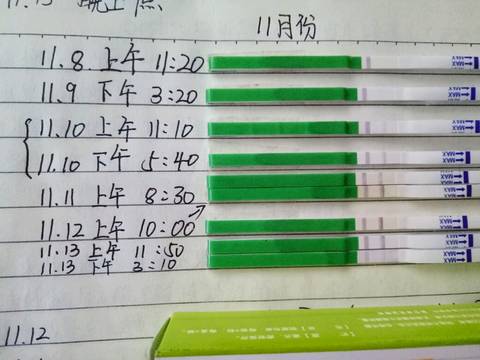 11月份
11.8 上午 11:20
11.9 下午 3:20
11.10 上午 11:10
11.10 下午 5:40
11.11 上午 8:30
11.12 上午 10:00
11.13 上午 11:50
11.13 下午 3:10
11.12
MAX
MAX
MAX
MAX
MAX
MAX
MAX